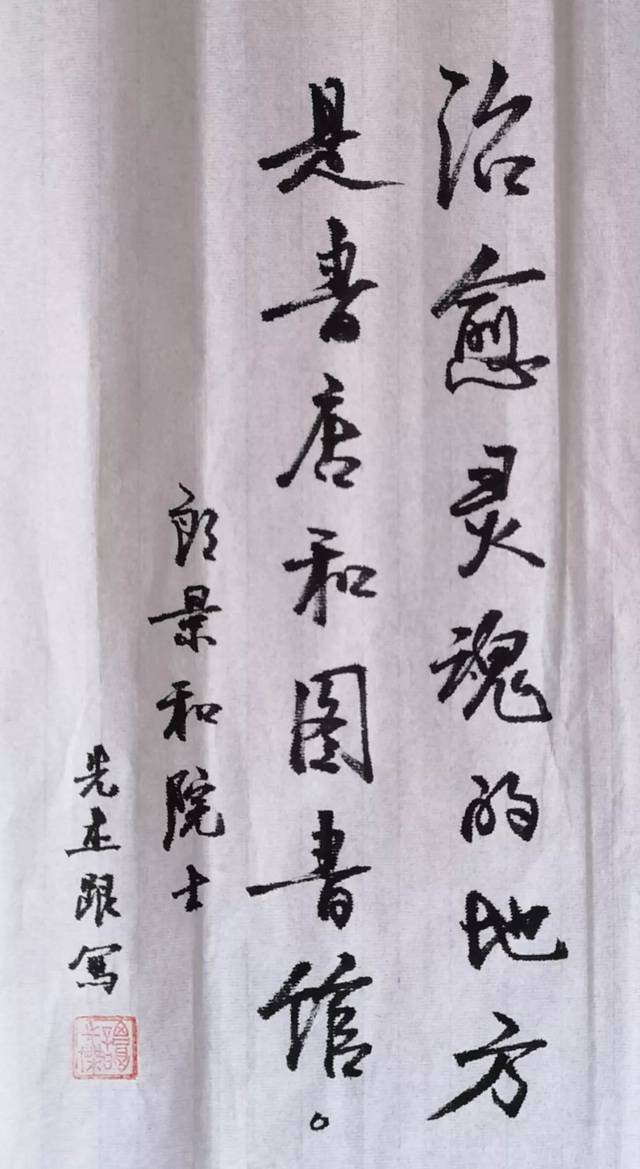 治愈灵魂的地方
是书店和图书馆。
郎景和院士
先杰跟写